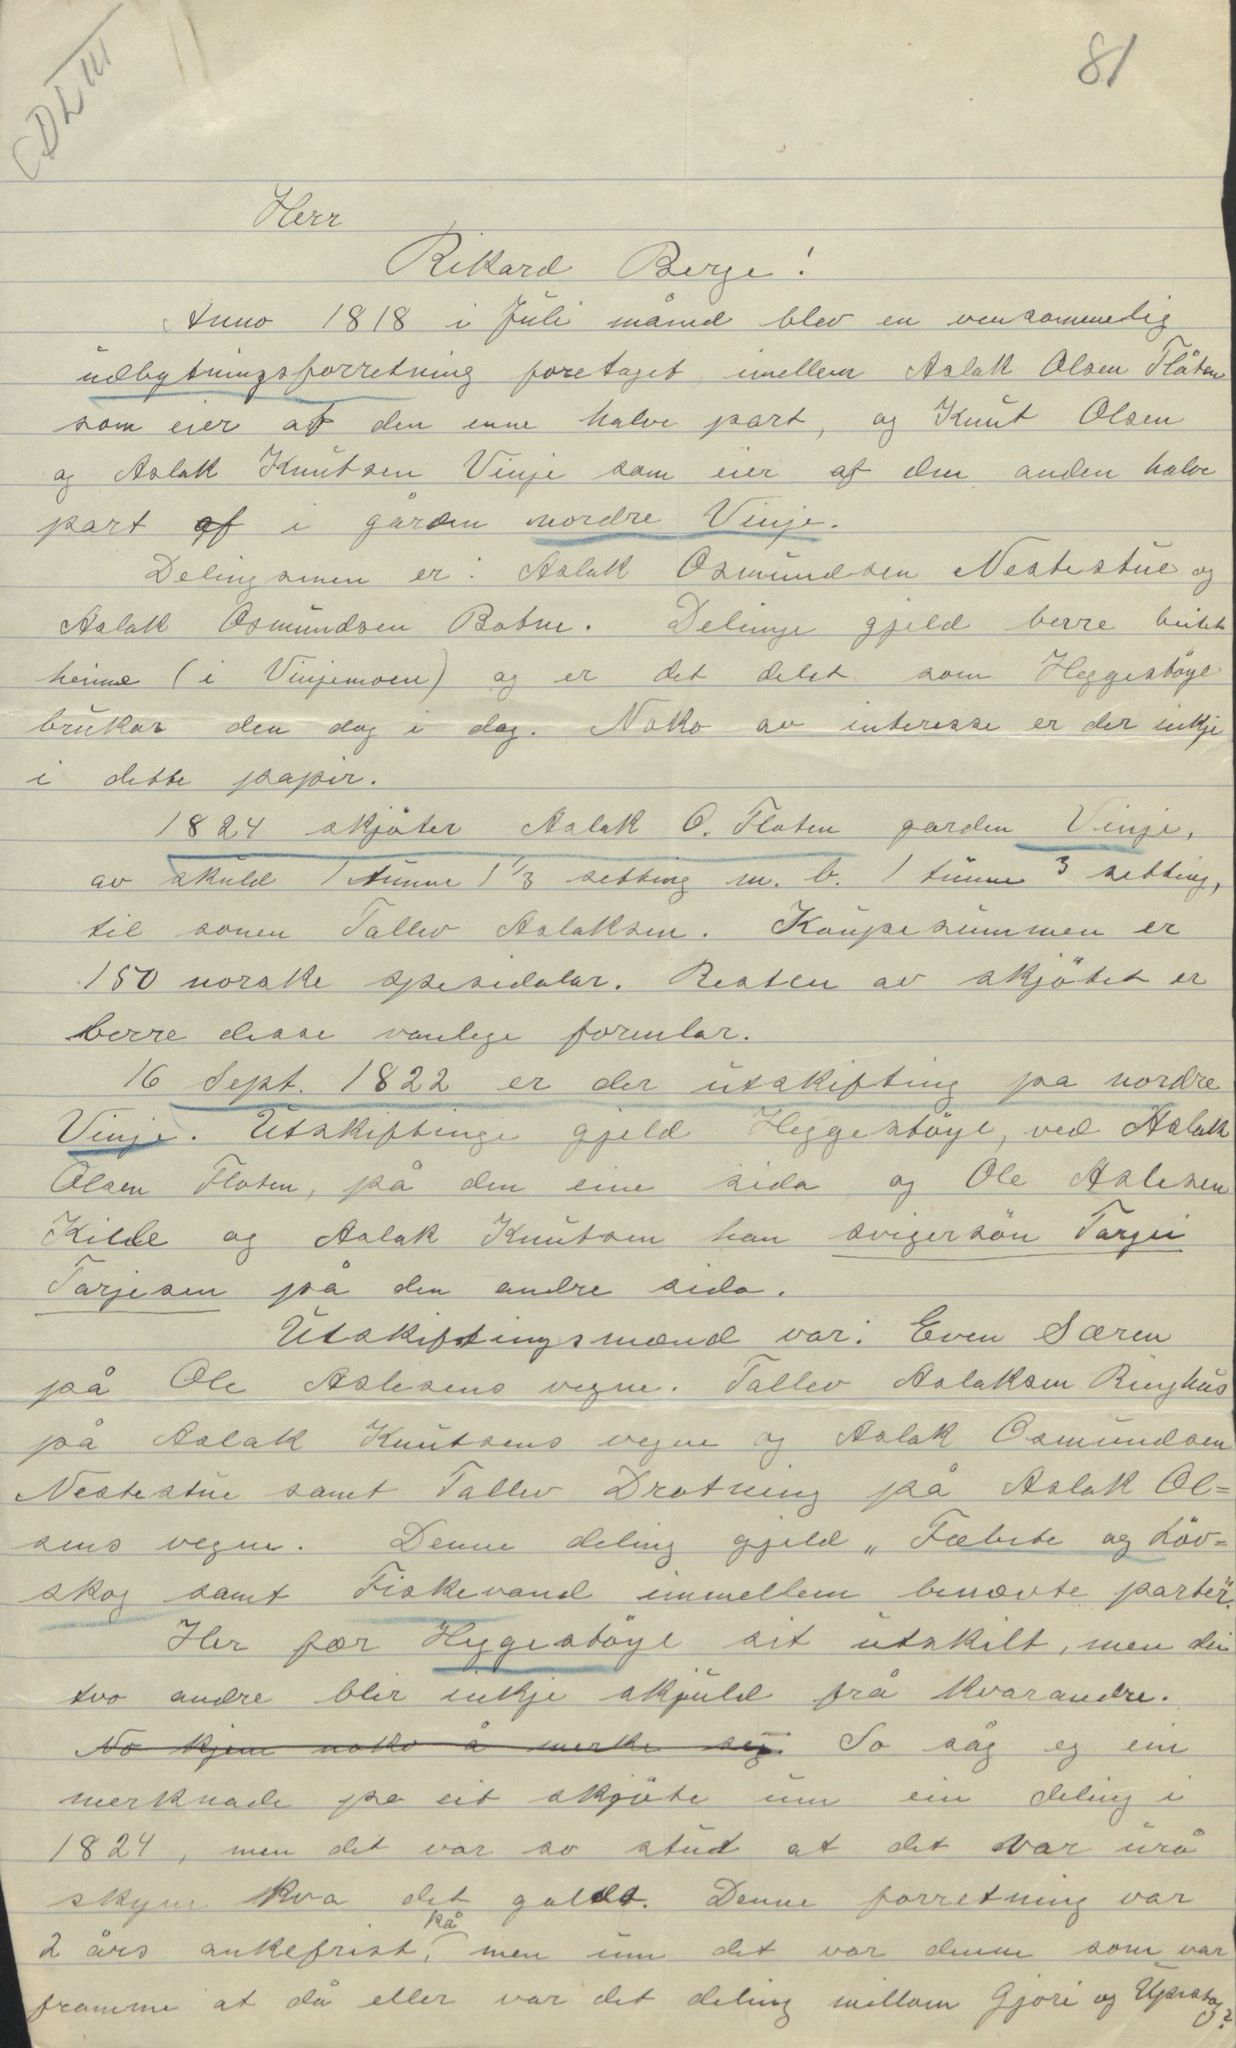 CDLIII
81
Herr
Rikard Berge!
Anno 1818 i Juli måned blev en vensommelig
udbytningsforretning foretaget imellem Aslak Olsen Flåten
som eier af den enne halve part, og Knut Olsen
og Aslak Knutsen Vinje som eier af den anden halve
part af i gården nordre Vinje.
Delingsmen er: Aslak Osmundsen Nestestue og
Aslak Osmundsen Botne. Delinge gjeld berre beitet
heime (i Vinjemoen) og er det delet som Heggestöyl
brukar den dag i dag. Noko av interesse er der inkje
i dette papir.
1824 skjöter Aslak O. Flaten garden Vinje,
av skuld 1 tunne 1 1/3 setting m. b. 1 tunne 3 setting,
til sonen Tallev Aslaksen. Kaupesummen er
150 norske spesidalar. Resten av skjötet er
berre desse vanlege formlar.
16 Sept. 1822 er der utskifting pa nordre
Vinje. Utskiftinge gjeld Heggestöyl, ved Aslak
Olsen Flaten, på den eine sida og Ole Aslesen
Kilde og Aslak Knutsen han svigersön Targei
Tarjesen på den andre sida.
Utskiftingsmænd var: Even Særen
på Ole Aslesens vegne. Tallev Aslaksen Ringhus
på Aslak Knutsens vegne og Aslak Osmundsen
Nestestue samt Tallev Drotning på Aslak Ol=
sens vegne. Denne deling gjeld „Fæbete og Löv=
skog samt Fiskevand immellem benævte parter".
Her fær Heggestöyl sit utskilt, men dei
tvo andre blir inkje skjuld frå kvarandre.
No kjem noko å merke seg. So såg eg ein
merknade pa eit skjöte um ein deling i
1824, men det var so stut at det var urå
skyne kva det galdt. Denne forretning var
på
2 års ankefrist, men um det var denne som var
framme at då eller var det deling millom Gjöri og Upistog?